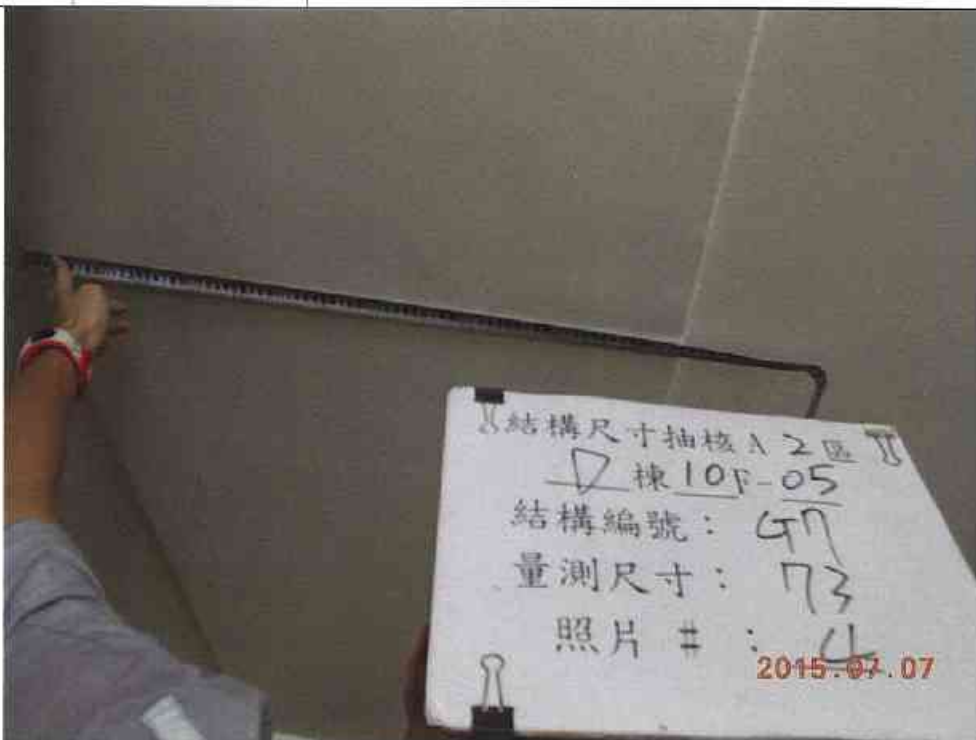 結構尺寸抽核A 2 區
D 棟 10F-05
結構編號： G7
量測尺寸： 73
照片 # ： 4
2015.07.07